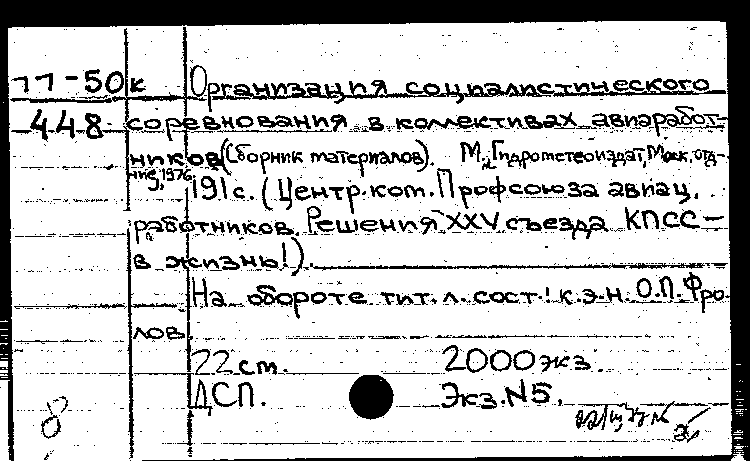 77-50к Организация социалистического
448 соревнования в коллективах авиаработ-
ников (Сборник материалов). М., Гидрометеоиздат, Моск. отд-
ние, 1976, 191 с. (Центр. ком. Профсоюза авиац.
работников. Решения XXV съезда КПСС -
в жизнь!).
На обороте тит. л. сост.: к.э.н. О.П. Фро
лов
22 см. 2000 экз.
ДСП. Экз. №5.
8